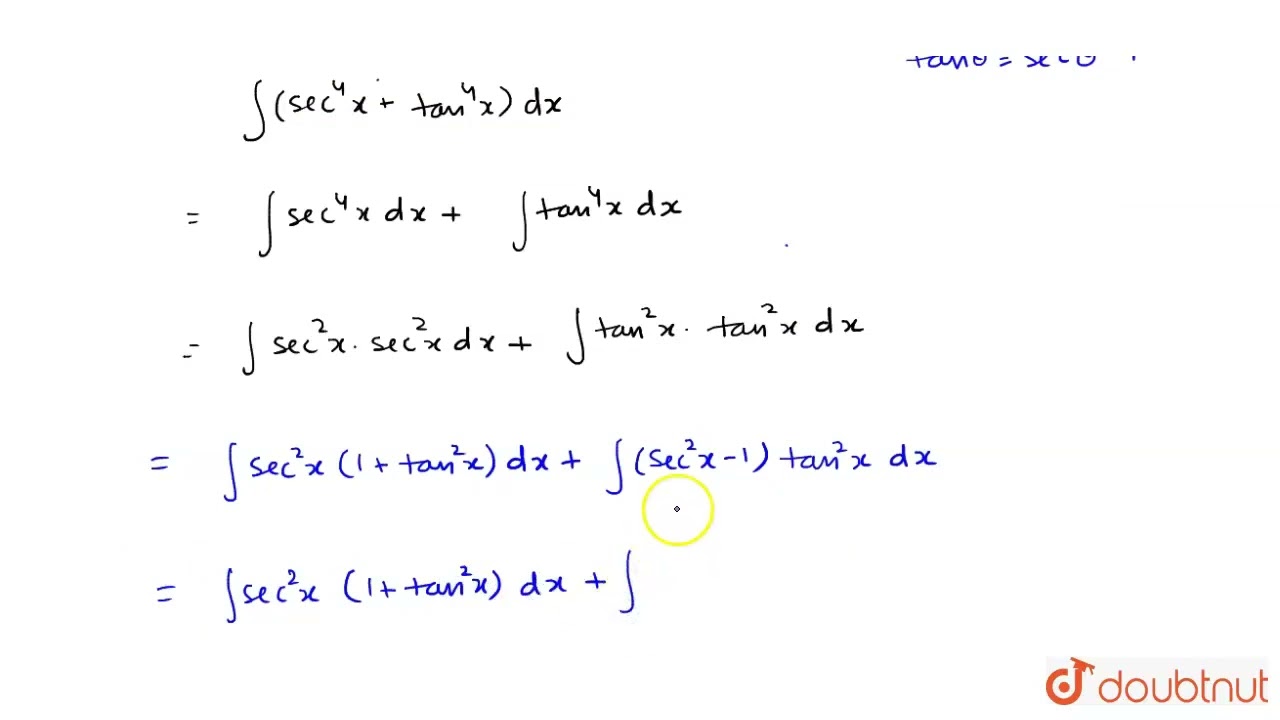 tanθ = secθ - 1
∫(sec⁴x + tan⁴x) dx
= ∫sec⁴x dx + ∫tan⁴x dx
= ∫sec²x · sec²x dx + ∫tan²x · tan²x dx
= ∫sec²x (1 + tan²x) dx + ∫(sec²x - 1) tan²x dx
= ∫sec²x (1 + tan²x) dx + ∫
doubtnut